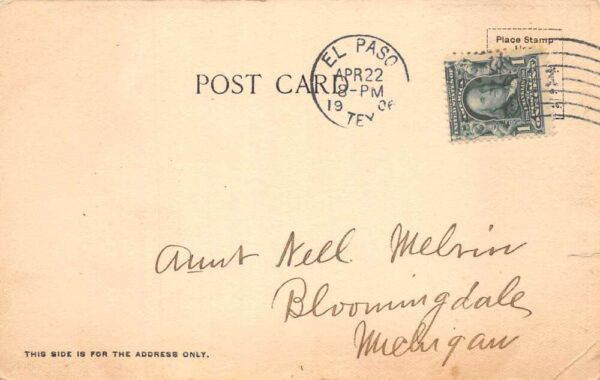 Place Stamp
EL PASO
APR 22
8-PM
1906
TEX
POST CARD
Aunt Nell. Melvin
Bloomingdale
Michigan
THIS SIDE IS FOR THE ADDRESS ONLY.